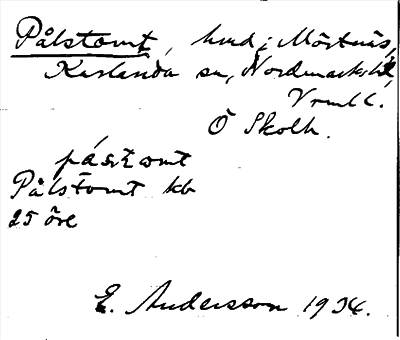 Pålstomt, hmd i Mörtnäs,
Karlanda sn, Nordmarks hd,
Vrml l.
O Skolh.
Pålstomt kb
25 öre
E. Andersson 1934.